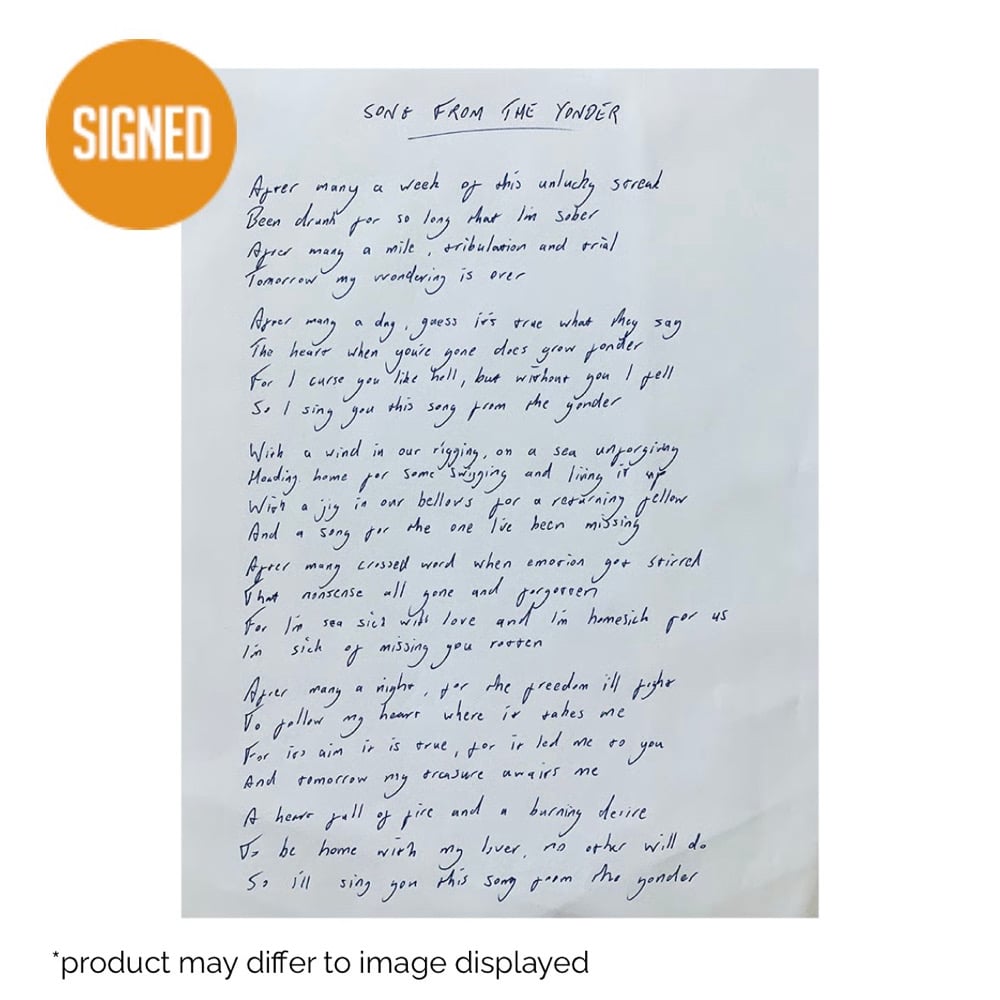 SIGNED
SONG FROM THE YONDER
After many a week of this unlucky streak
Been drunk for so long that I'm sober
After many a mile, tribulation and trial
Tomorrow my wondering is over
After many a day, guess it's true what they say
The heart when you're gone does grow fonder
For I curse you like hell, but without you I fell
So I sing you this song from the yonder
With a wind in our rigging, on a sea unforgiving
Heading home for some swigging and living it up
With a jig in our bellows for a returning fellow
And a song for the one I've been missing
After many crossed word when emotion got stirred
That nonsense all gone and forgotten
For I'm sea sick with love and I'm homesick for us
I'm sick of missing you rotten
After many a night, for the freedom ill fight
To follow my heart where it takes me
For its aim it is true, for it led me to you
And tomorrow my treasure awaits me
A heart full of fire and a burning desire
To be home with my lover, no other will do
So i'll sing you this song from the yonder
*product may differ to image displayed